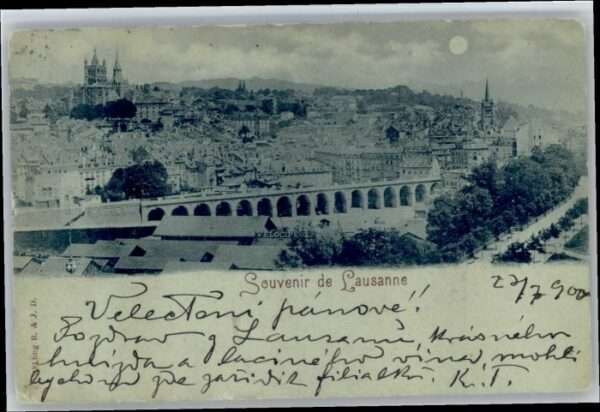 VELOCI
Souvenir de Lausanne
27/7 900
Velectění pánové!!
Pozdrav z Lausannu, krásného
hnízda a laciného vína, mohli
bychom zde zařídit filialku. K.T.
R. & J. D.